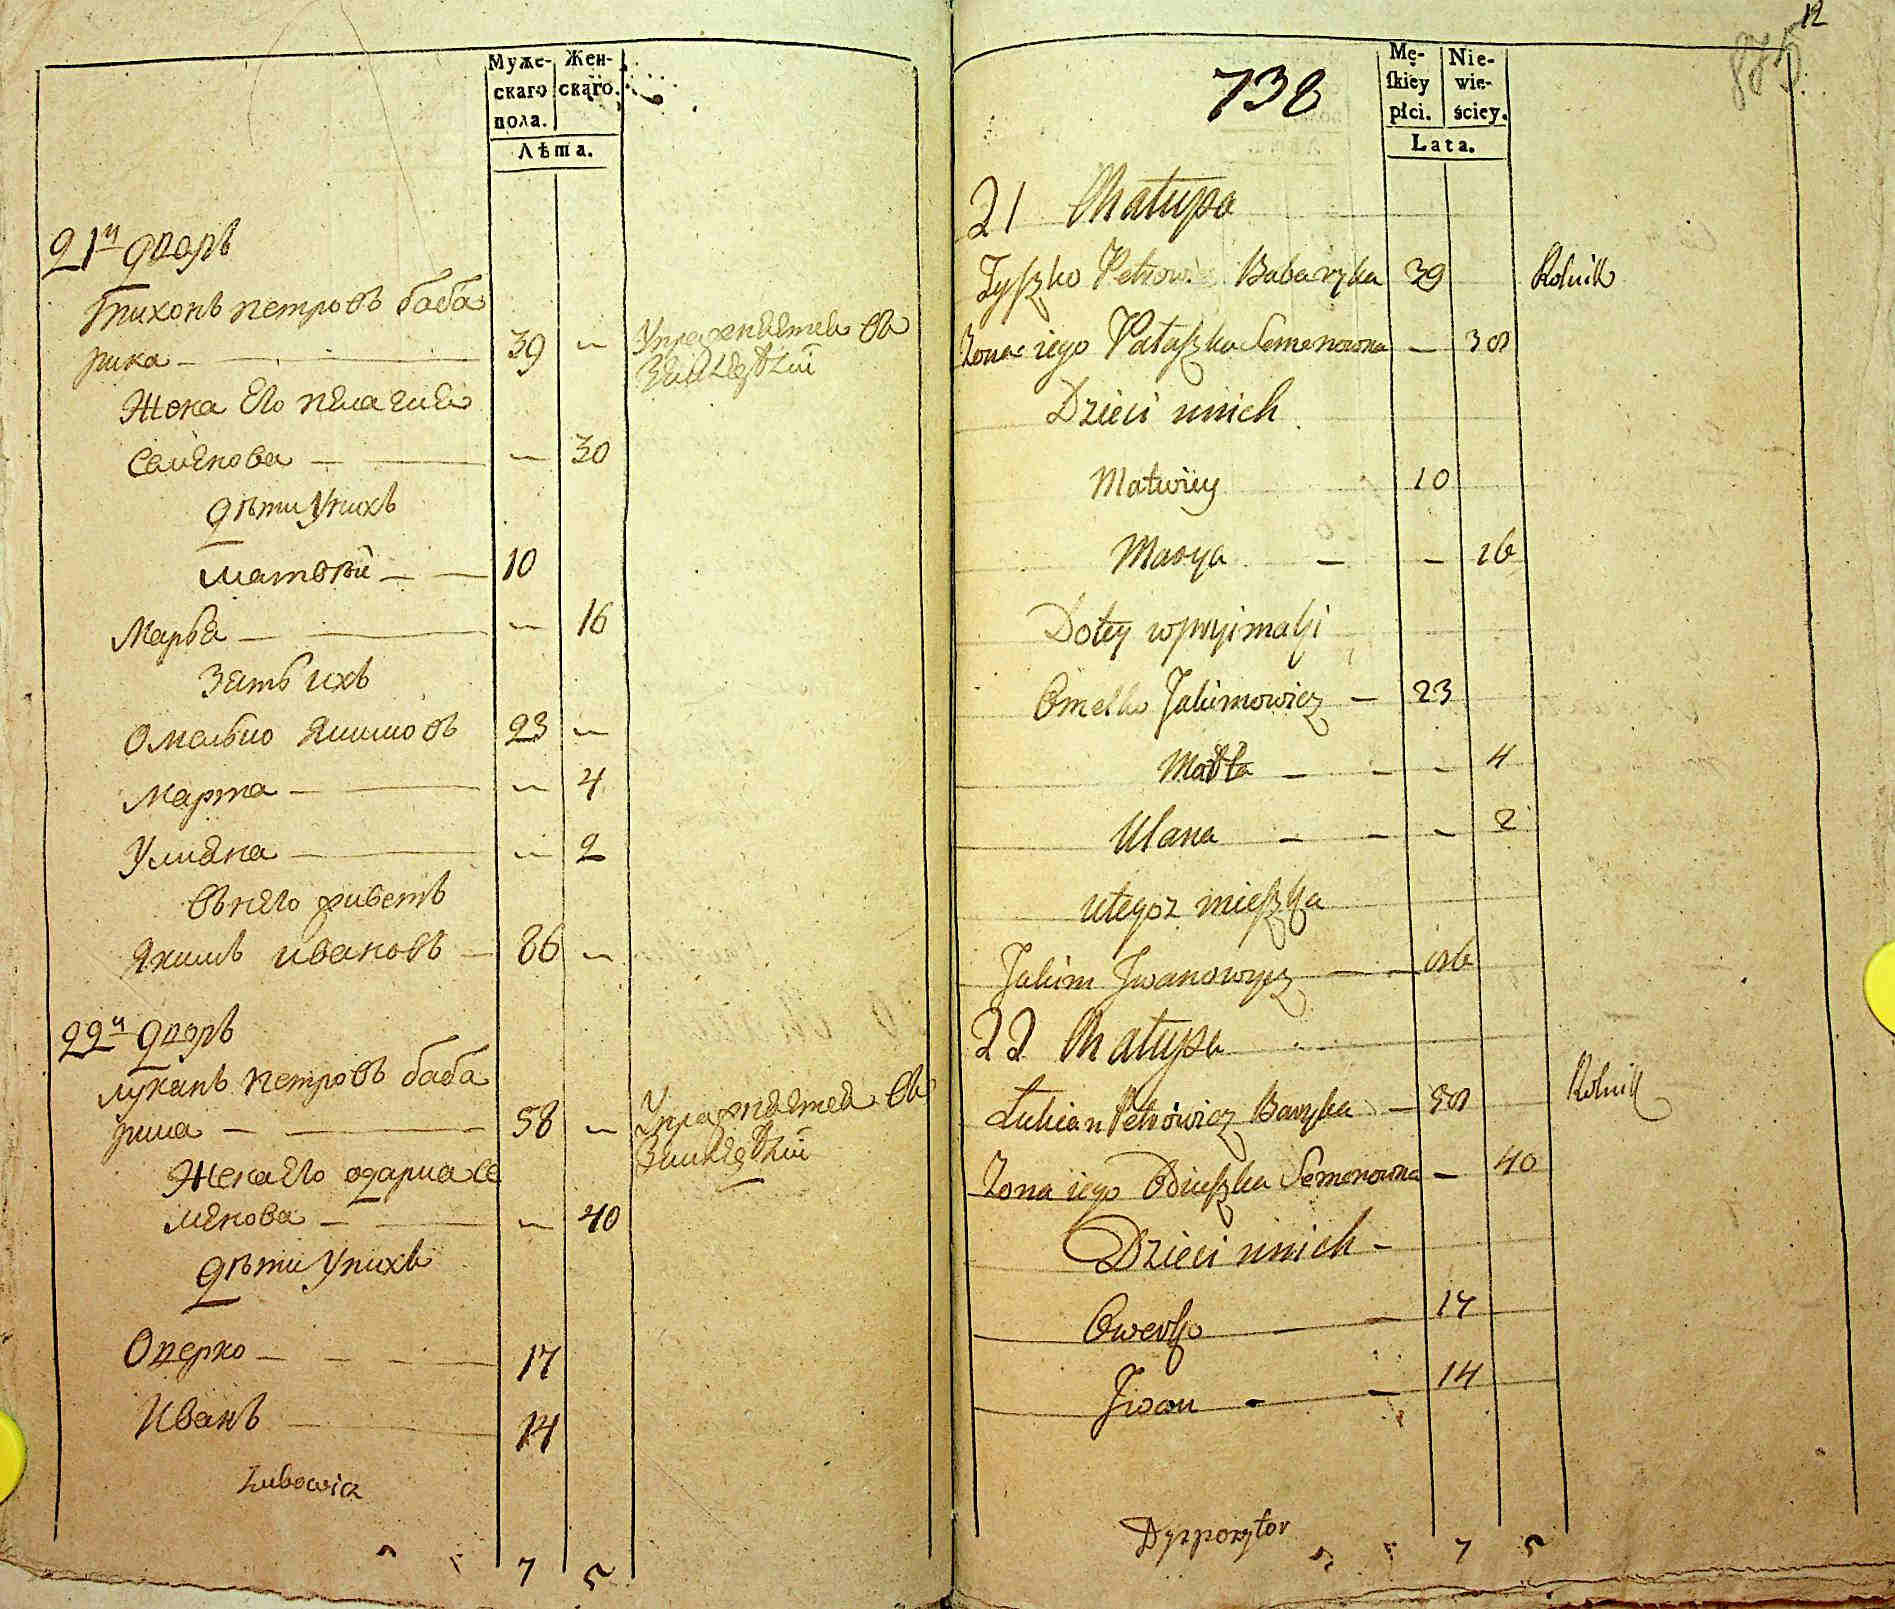 Муже-
скаго
пола.
Жен-
скаго.
Лѣта.
21й дворъ
Тихонъ Петровъ Баба
рика — 39 —
Упражняется въ
Земледѣлiи
Жена Его Пелагия
Семенова — — 30
Дѣти У нихъ
Матвѣй — 10
Марья — — 16
Зять ихъ
Омелько Якимовъ 23 —
Марта — — 4
Улияна — — 2
Въ него живетъ
Якимъ Ивановъ — 86 —
22й дворъ
Лукянъ Петровъ Баба
рика — 58 —
Упражняется въ
Земледѣлiи
Жена Его Одарка Се
менова — — 40
Дѣти У нихъ
Оверко — 17
Иванъ 14
Lubowicz
7 5
12
885
738
Mę-
ſkiey
płci.
Nie-
wie-
ściey.
Lata.
21 Chałupa
Tyſzko Petrowicz Babaryka 39 Rolnik
Zona iego Pałaſzka Semenowna — 30
Dzieci unich
Matwiey 10
Marya — — 16
Dotey wpryimaſzi
Omelko Jakimowicz — 23
Marta — — — 4
Ulana — — — 2
utegoz mieſzka
Jakim Jwanowycz — — 86
22 Chałupa
Łukian Petrowicz Baryka — 58 Rolnik
Zona iego Odiuſzka Semenowna — 40
Dzieci unich —
Owerko — — 17
Jwan — — 14
Dyspozytor
7 5